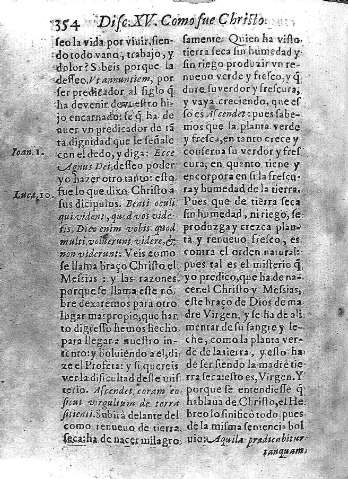 354 Disc. XV. Como fue Christo
seo la vida por viuir, sien-
do todo vano, trabajo, y
dolor? S. beis porque la
desseo, Vt annuntiem, por
ser predicador al siglo q̃
ha de venir de vuestro hi-
jo encarnado: se q̃ ha de
auer vn predicador de tã
ta dignidad que se señale
Ioan. 1.
con el dedo, y diga: Ecce
Agnus Dei, desseo poder
yo hazer otro tanto: esto
fue lo que dixo Christo a
Luca, 10.
sus dicipulos. Beati oculi
qui vident, quæ vos vide-
tis. Dico enim vobis quod
multi voluerunt videre, &
non viderunt. Veis como
se llama braço Christo el
Messias: y las razones
porque se llama este nõ-
bre dexaremos para otro
lugar mas proprio, que harto
digresso hemos hecho
para llegar a nuestro in-
tento: y boluiendo a el, di
ze el Profeta: y si quereis
ver la dificultad desse mis
terio. Ascendet coram eo
sicut virgultum de terra
sitienti. Subirà delante del
como renueuo de tierra
seca: ha de nacer milagro
samente. Quien ha visto
tierra seca sin humedad y
sin riego produzir vn re-
nueuo verde y fresco, y q̃
dure su verdor y frescura,
y vaya creciendo, que esso
es Ascendet: pues sabe-
mos que la planta verde
y fresca, en tanto crece y
cõserua su verdor y fres-
cura, en quanto tiene y
encorpora en si la frescu-
ra y humedad de la tierra.
Pues que de tierra seca
sin humedad, ni riego, se
produzga y crezca plan-
ta y renueuo fresco, es
contra el orden natural:
pues tal es el misterio q̃
yo profetico, que ha de na-
cer el Christo y Messias,
este braço de Dios de ma
dre Virgen, y se ha de ali
mentar de su sangre y le-
che, como la planta ver-
de de la tierra, y esto ha
de ser siendo la madre tie
rra seca: esto es, Virgen. Y
porque se entendiesse q̃
hablaua de Christo, el He
breo lo sinifico todo pues
de la misma sentencia bol
uio: Aquila prædicabitur
tanquam.